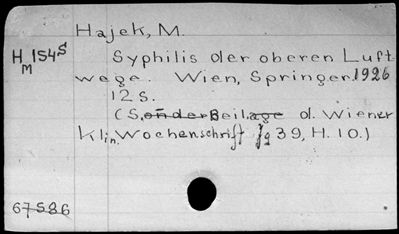 Hajek, M.
H 154 S
M
Syphilis der oberen Luft
wege. Wien, Springer, 1926
12 S.
(Sonder Beilage d. Wiener
Klin. Wochenschrift Jg 39, H. 10.)
67586